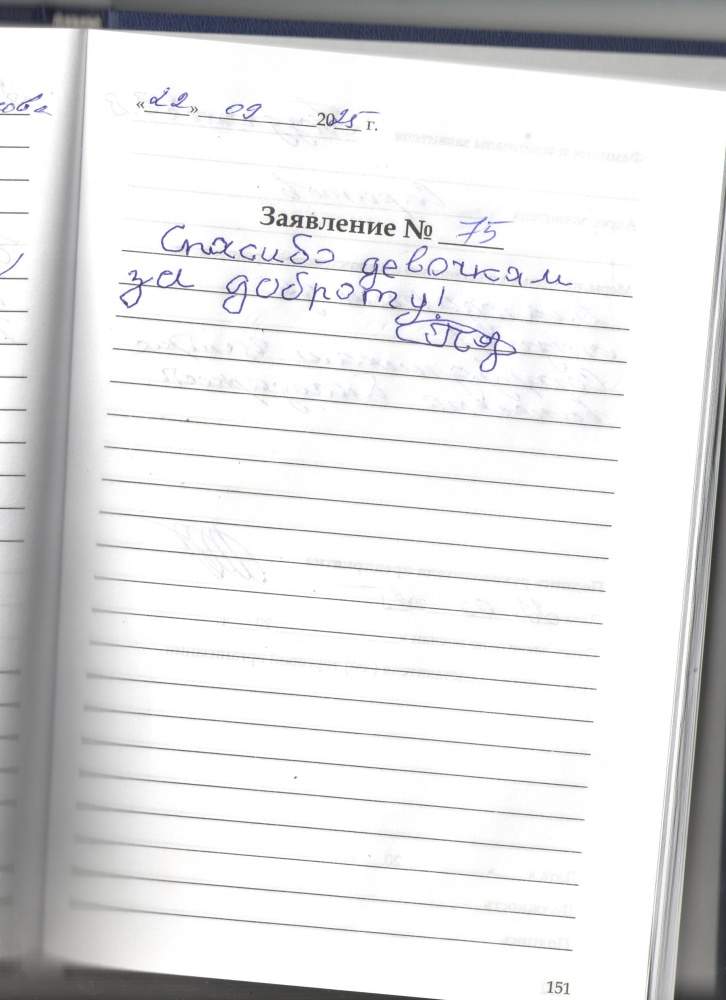 «22» 09 2025 г.
Заявление № 75
Спасибо девочкам
за доброту!
151